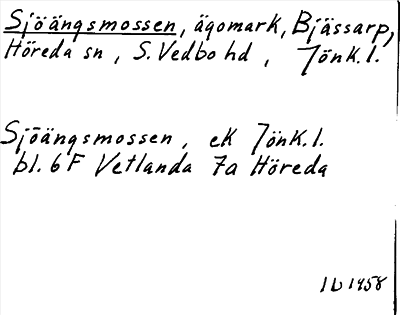 Sjöängsmossen, ägomark, Bjässarp,
Höreda sn, S. Vedbo hd, Jönk.l.
Sjöängsmossen, ek Jönk.l.
bl. 6F Vetlanda 7a Höreda
Ib 1958